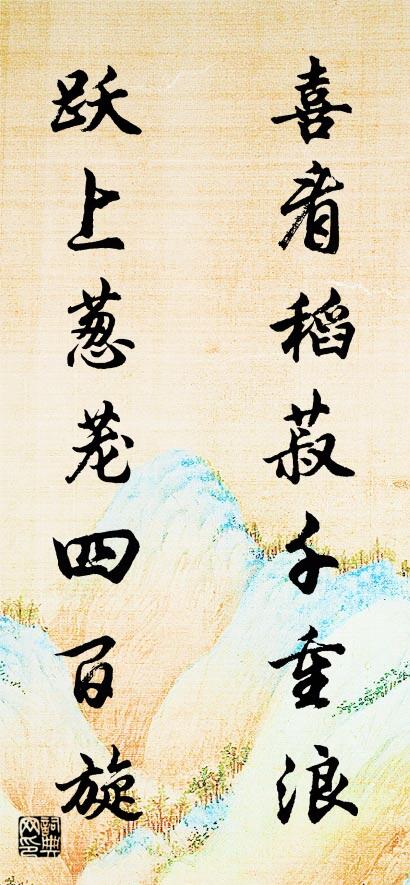 喜看稻菽千重浪
跃上葱茏四百旋
词典网印